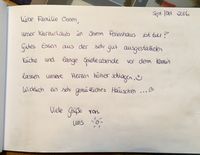 Sept/Okt. 2016
Liebe Familie
unser Kurzurlaub in Ihrem Ferienhaus ist
Gutes Essen aus der sehr gut ausgestatteten
Küche und lange Spieleabende vor dem Kamin
lassen unsere Herzen höher schlagen.
Wirklich ein sehr gemütliches Häuschen ...
Viele Grüße von
uns